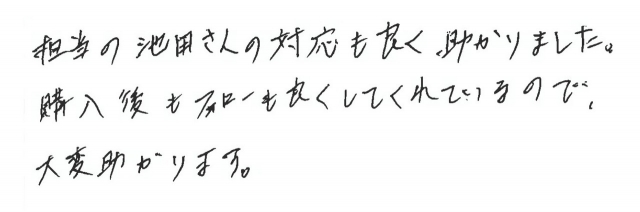 担当の池田さんの対応も良く助かりました。
購入後もフォローも良くしてくれているので、
大変助かります。